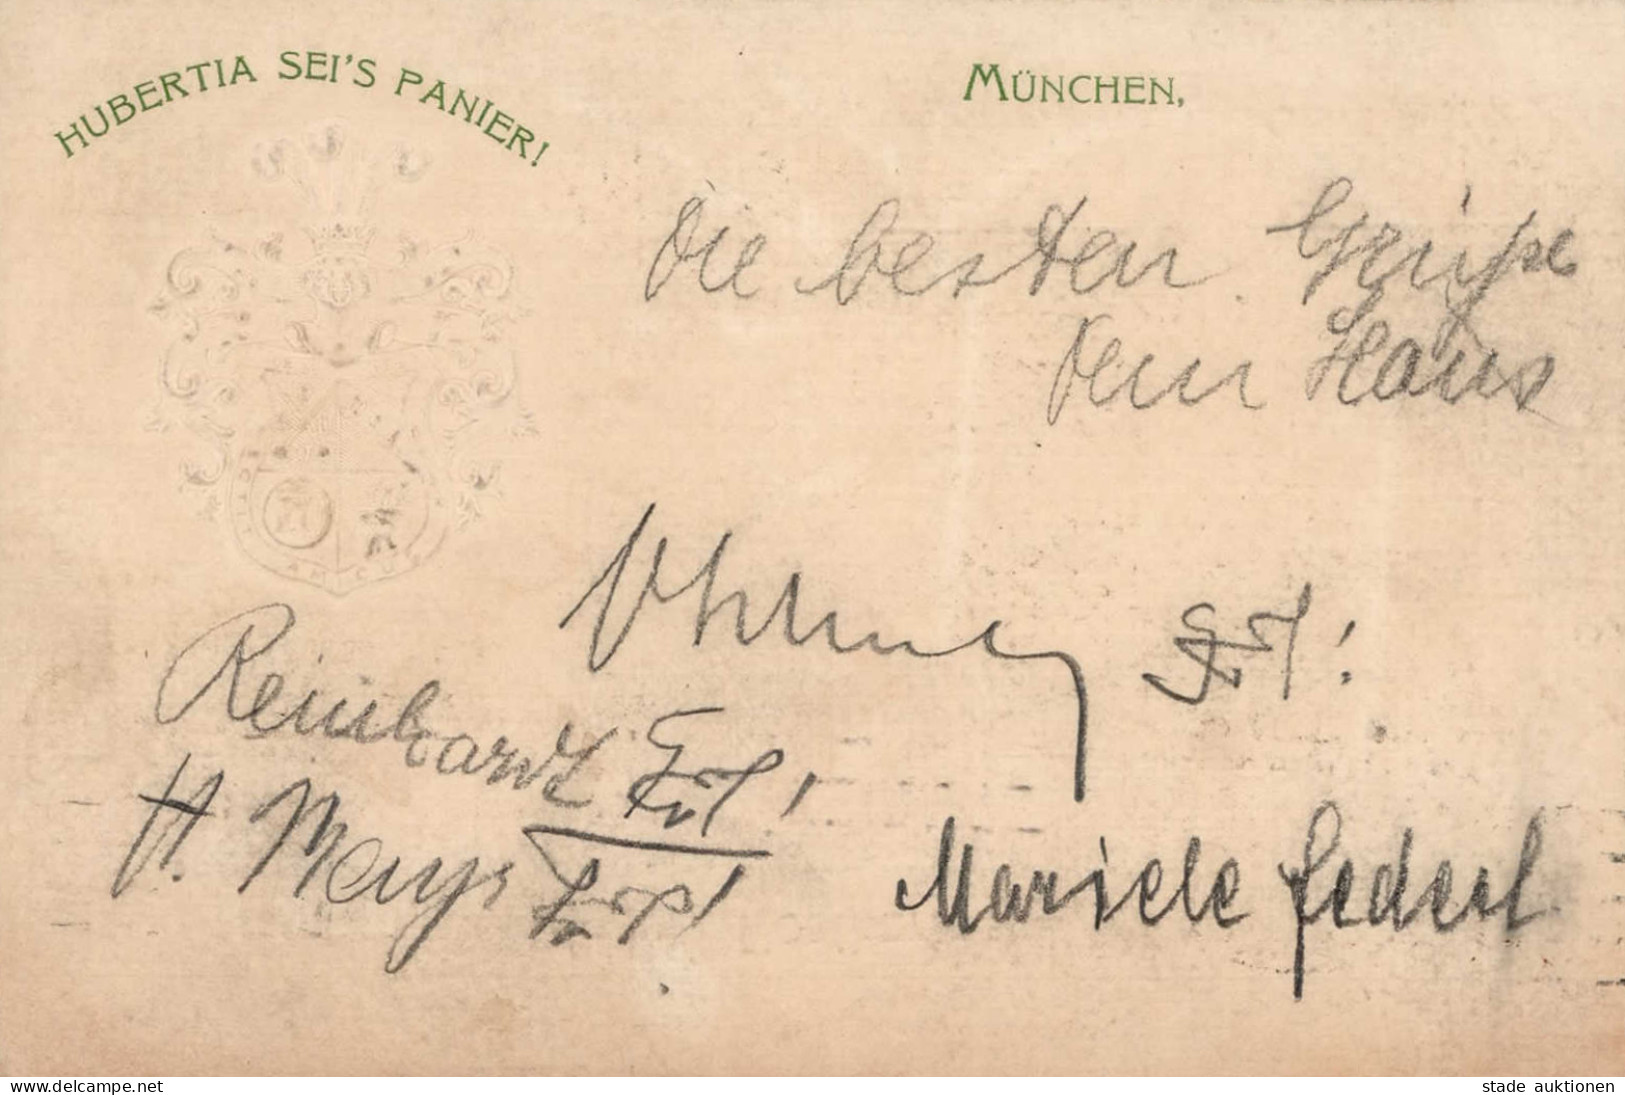 HUBERTIA SEI'S PANIER!
MÜNCHEN,
Die besten Grüße
dem Haus
Reinhardt
H. Mayr
Mariele Federl
www.delcampe.net
stade auktionen